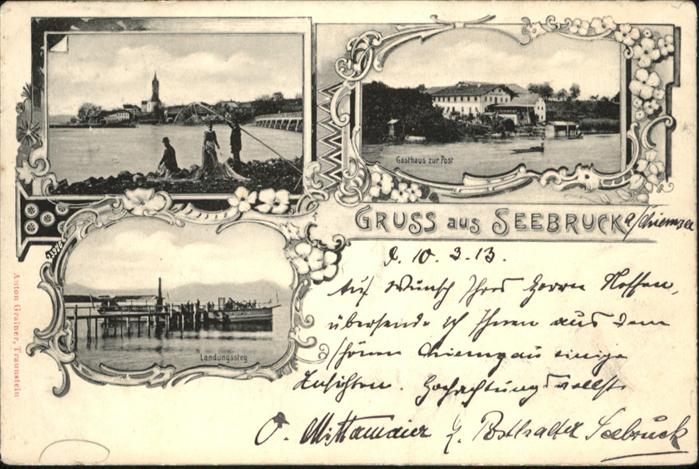 Gasthaus zur Post
GRUSS aus SEEBRUCK a/Chiemsee
d. 10. 3. 13.
Auf Wunsch Ihres Herrn Neffen,
übersende ich Ihnen aus dem
schönen Chiemgau einige
Ansichten. Hochachtungsvollst
O. Mittamaier z. Posthalter Seebruck
Landungssteg
Anton Grainer, Traunstein